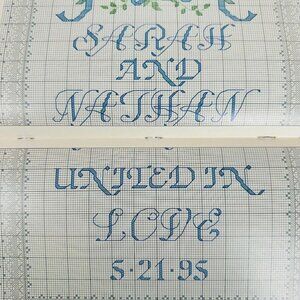 SARAH
AND
NATHAN
UNITED IN
LOVE
5·21·95